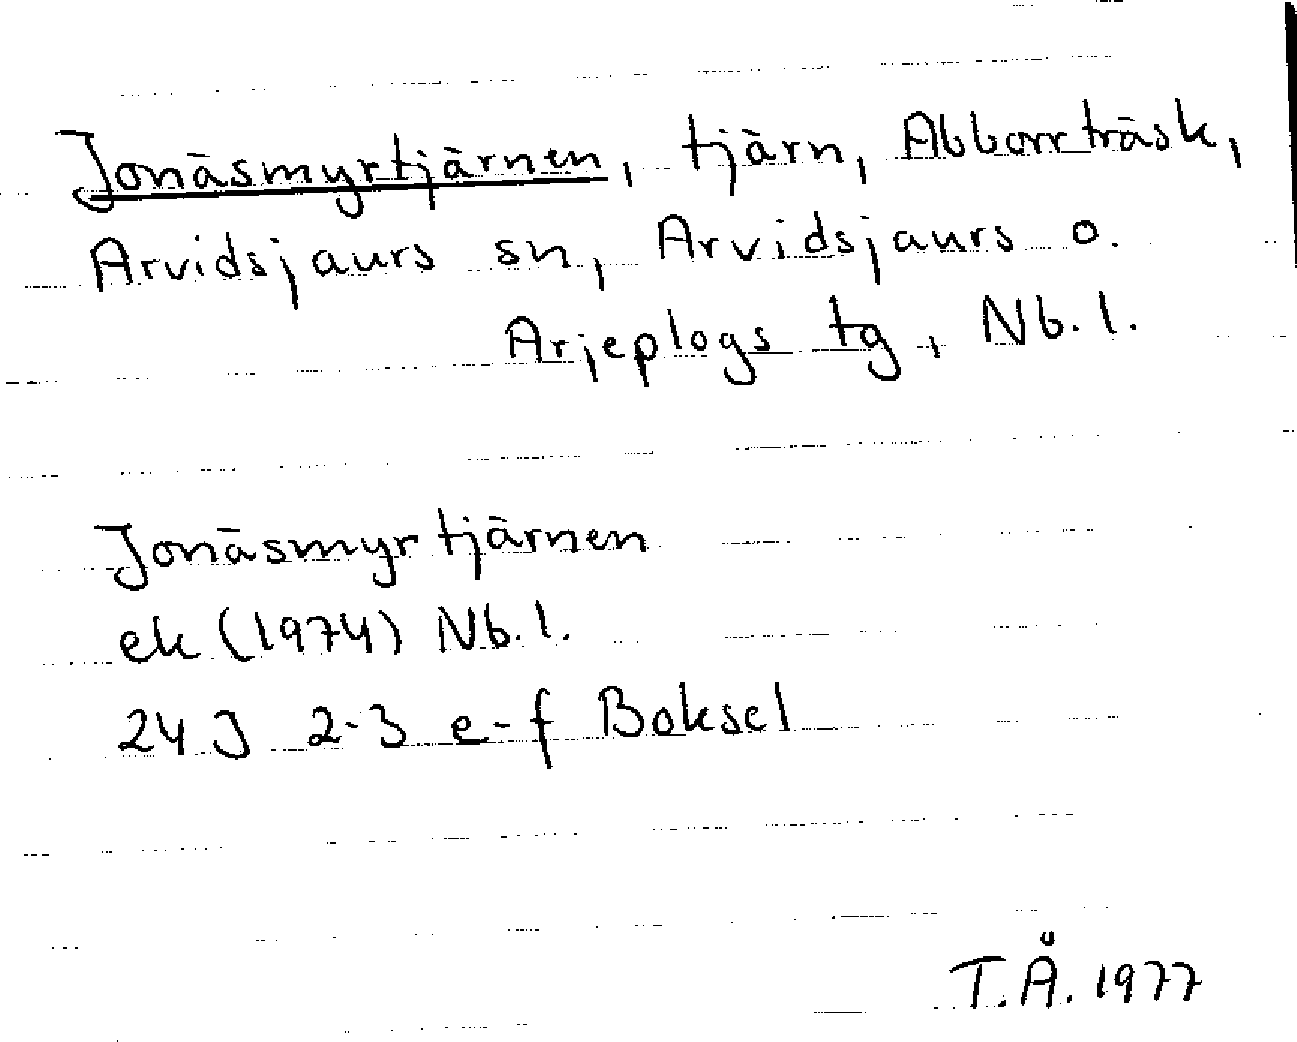 Jonäsmyrtjärnen, tjärn, Abborrträsk,
Arvidsjaurs sn, Arvidsjaurs o.
Arjeplogs tg, Nb. l.
Jonäsmyrtjärnen
ek (1974) Nb. l.
24 J 2-3 e-f Boksel
T.Å. 1977